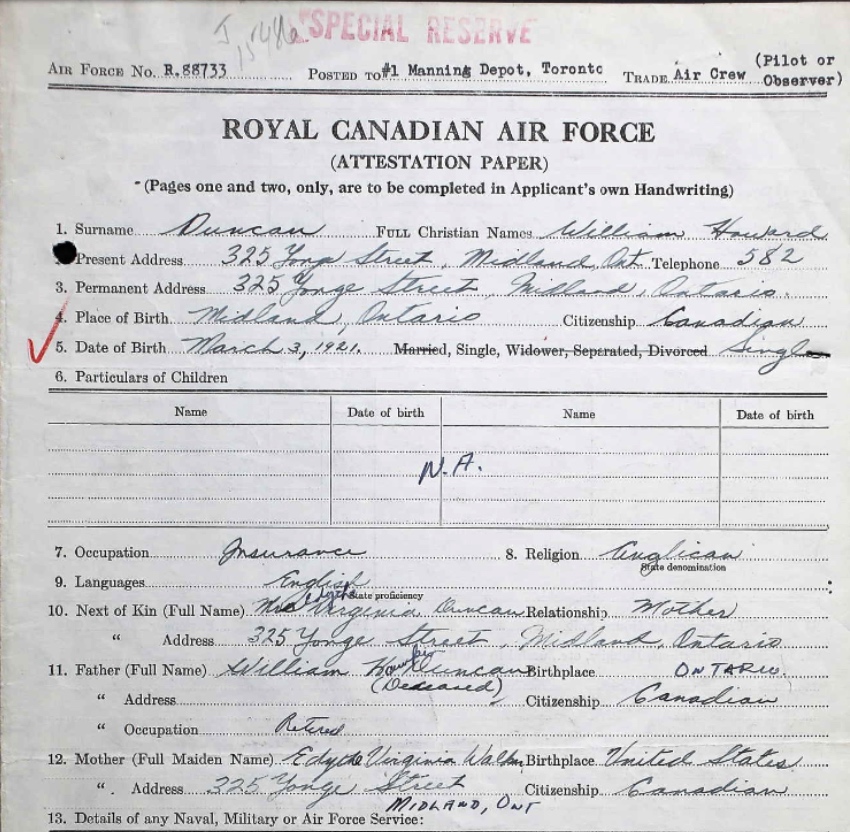 SPECIAL RESERVE
AIR FORCE No. R.88733 POSTED TO #1 Manning Depot, Toronto TRADE Air Crew (Pilot or Observer)
ROYAL CANADIAN AIR FORCE
(ATTESTATION PAPER)
(Pages one and two, only, are to be completed in Applicant's own Handwriting)
1. Surname Duncan FULL Christian Names William Howard
Present Address 325 Yonge Street, Midland, Ont Telephone 582
3. Permanent Address 325 Yonge Street, Midland, Ontario.
4. Place of Birth Midland, Ontario Citizenship Canadian
5. Date of Birth March 3, 1921. Married, Single, Widower, Separated, Divorced Single
6. Particulars of Children
Name Date of birth Name Date of birth
N.A.
7. Occupation Insurance 8. Religion Anglican
State denomination
9. Languages English
State proficiency
10. Next of Kin (Full Name) Mrs Virginia Duncan Relationship Mother
" Address 325 Yonge Street, Midland, Ontario
11. Father (Full Name) William Duncan Birthplace ONTARIO.
(Deceased)
" Address Citizenship Canadian
" Occupation Retired
12. Mother (Full Maiden Name) Edythe Virginia Birthplace United States
" Address 325 Yonge Street Citizenship Canadian
MIDLAND, ONT
13. Details of any Naval, Military or Air Force Service: